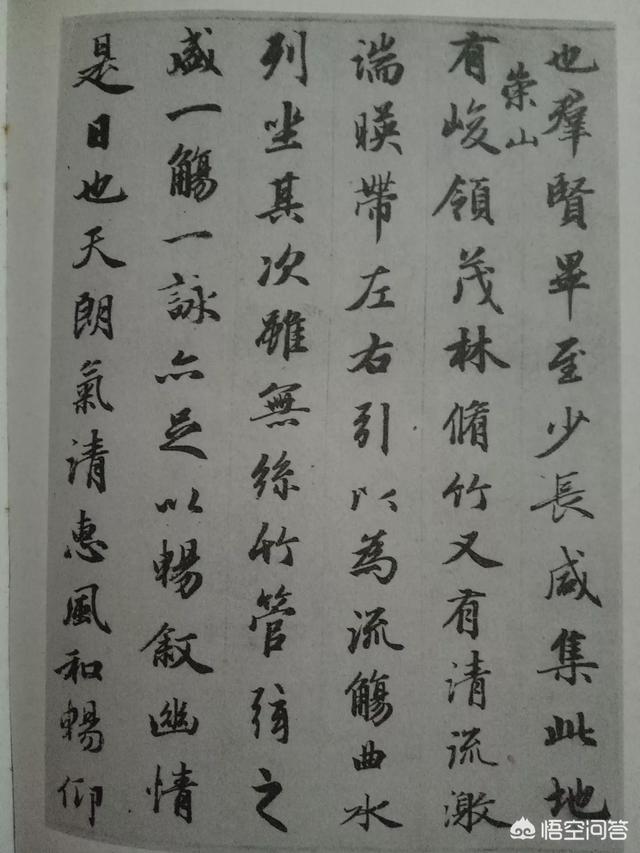 也羣賢畢至少長咸集此地
崇山
有峻領茂林脩竹又有清流激
湍暎帶左右引以為流觴曲水
列坐其次雖無絲竹管弦之
盛一觴一詠亦足以暢敘幽情
是日也天朗氣清惠風和暢仰
悟空问答